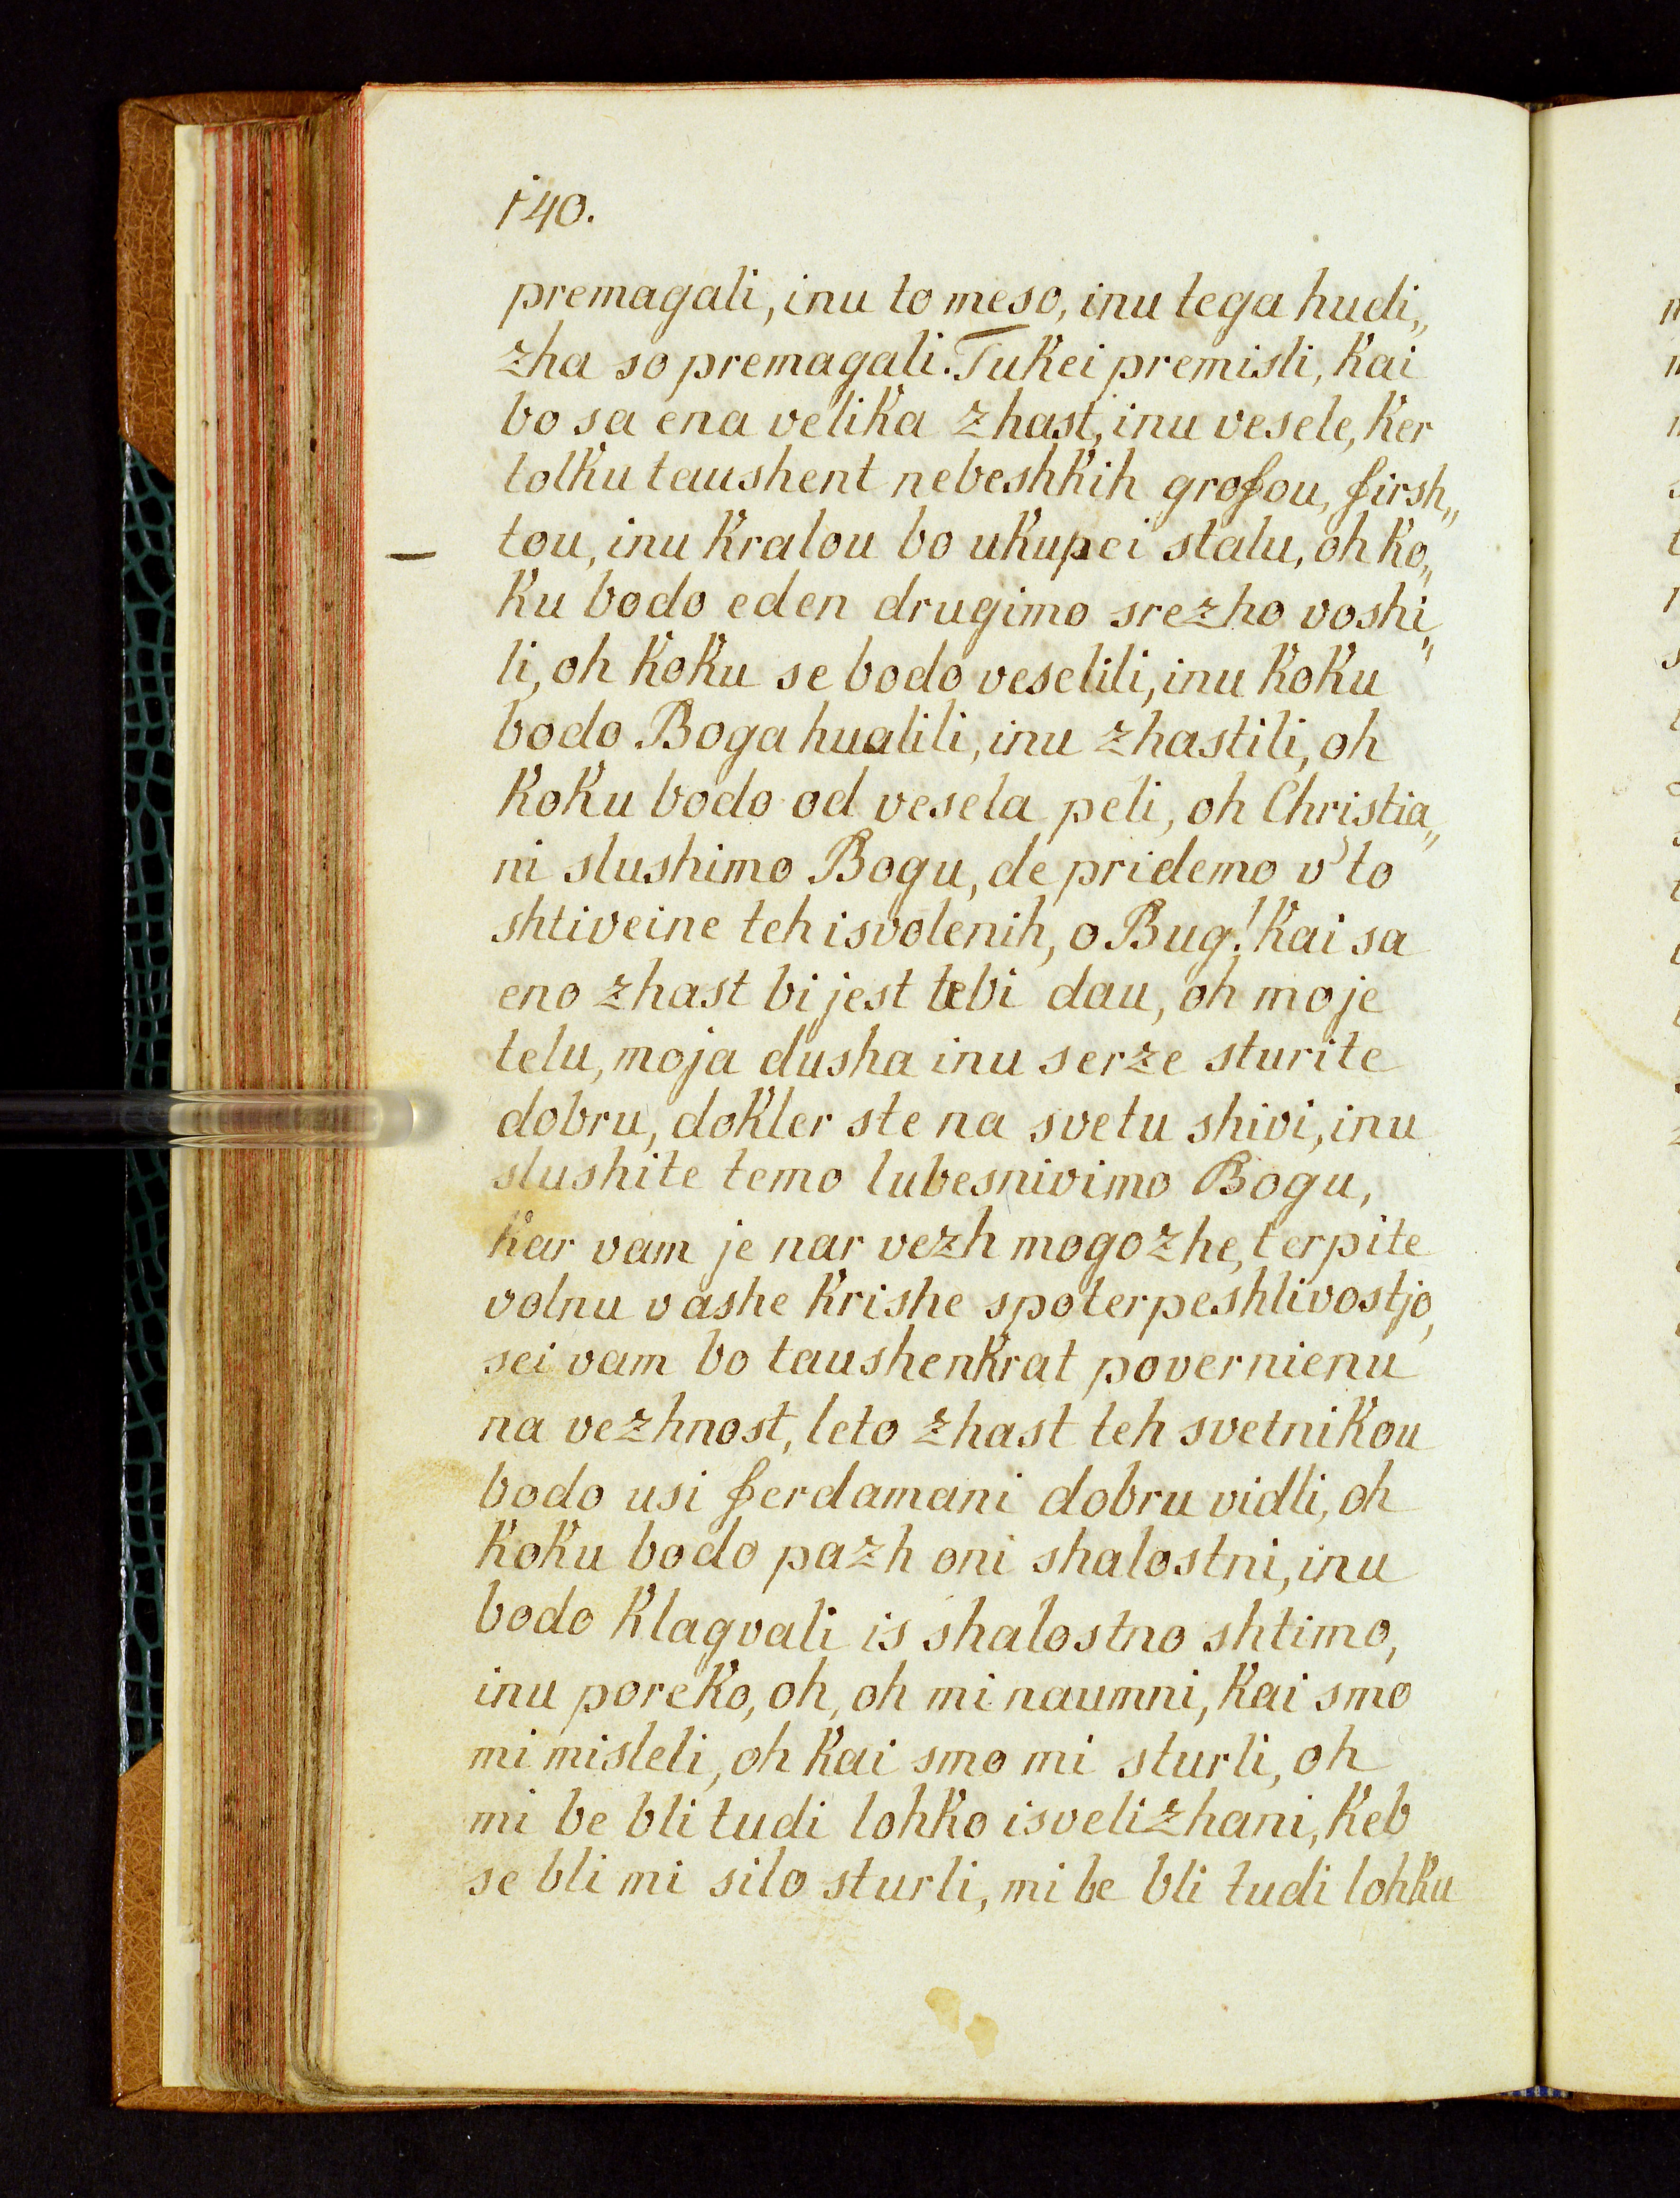 140.
premagali, inu to meso, inu tega hudi„
zha so premagali. Tukei premisli, kai
bo sa ena velika zhast, inu vesele, ker
tolku taushent nebeshkih grofou, firsh„
tou, inu kralou bo ukupei stalu, oh ko„
ku bodo eden drugimo srezho voshi„
li, oh koku se bodo veselili, inu koku
bodo Boga hualili, inu zhastili, oh
koku bodo od vesela peli, oh Christia„
ni slushimo Bogu, de pridemo v' to
shtiveine teh isvolenih, o Bug! kai sa
eno zhast bi jest tebi dau, oh moje
telu, moja dusha inu serze sturite
dobru, dokler ste na svetu shivi, inu
slushite temo lubesnivimo Bogu,
kar vam je nar vezh mogozhe, terpite
volnu vashe krishe spoterpeshlivostjo,
sei vam bo taushenkrat povernienu
na vezhnost, leto zhast teh svetnikou
bodo usi ferdamani dobru vidli, oh
koku bodo pazh oni shalostni, inu
bodo klagvali is shalostno shtimo,
inu poreko, oh, oh mi naumni, kai smo
mi misleli, oh kai smo mi sturli, oh
mi be bli tudi lohko isvelizhani, keb
se bli mi silo sturli, mi be bli tudi lohku